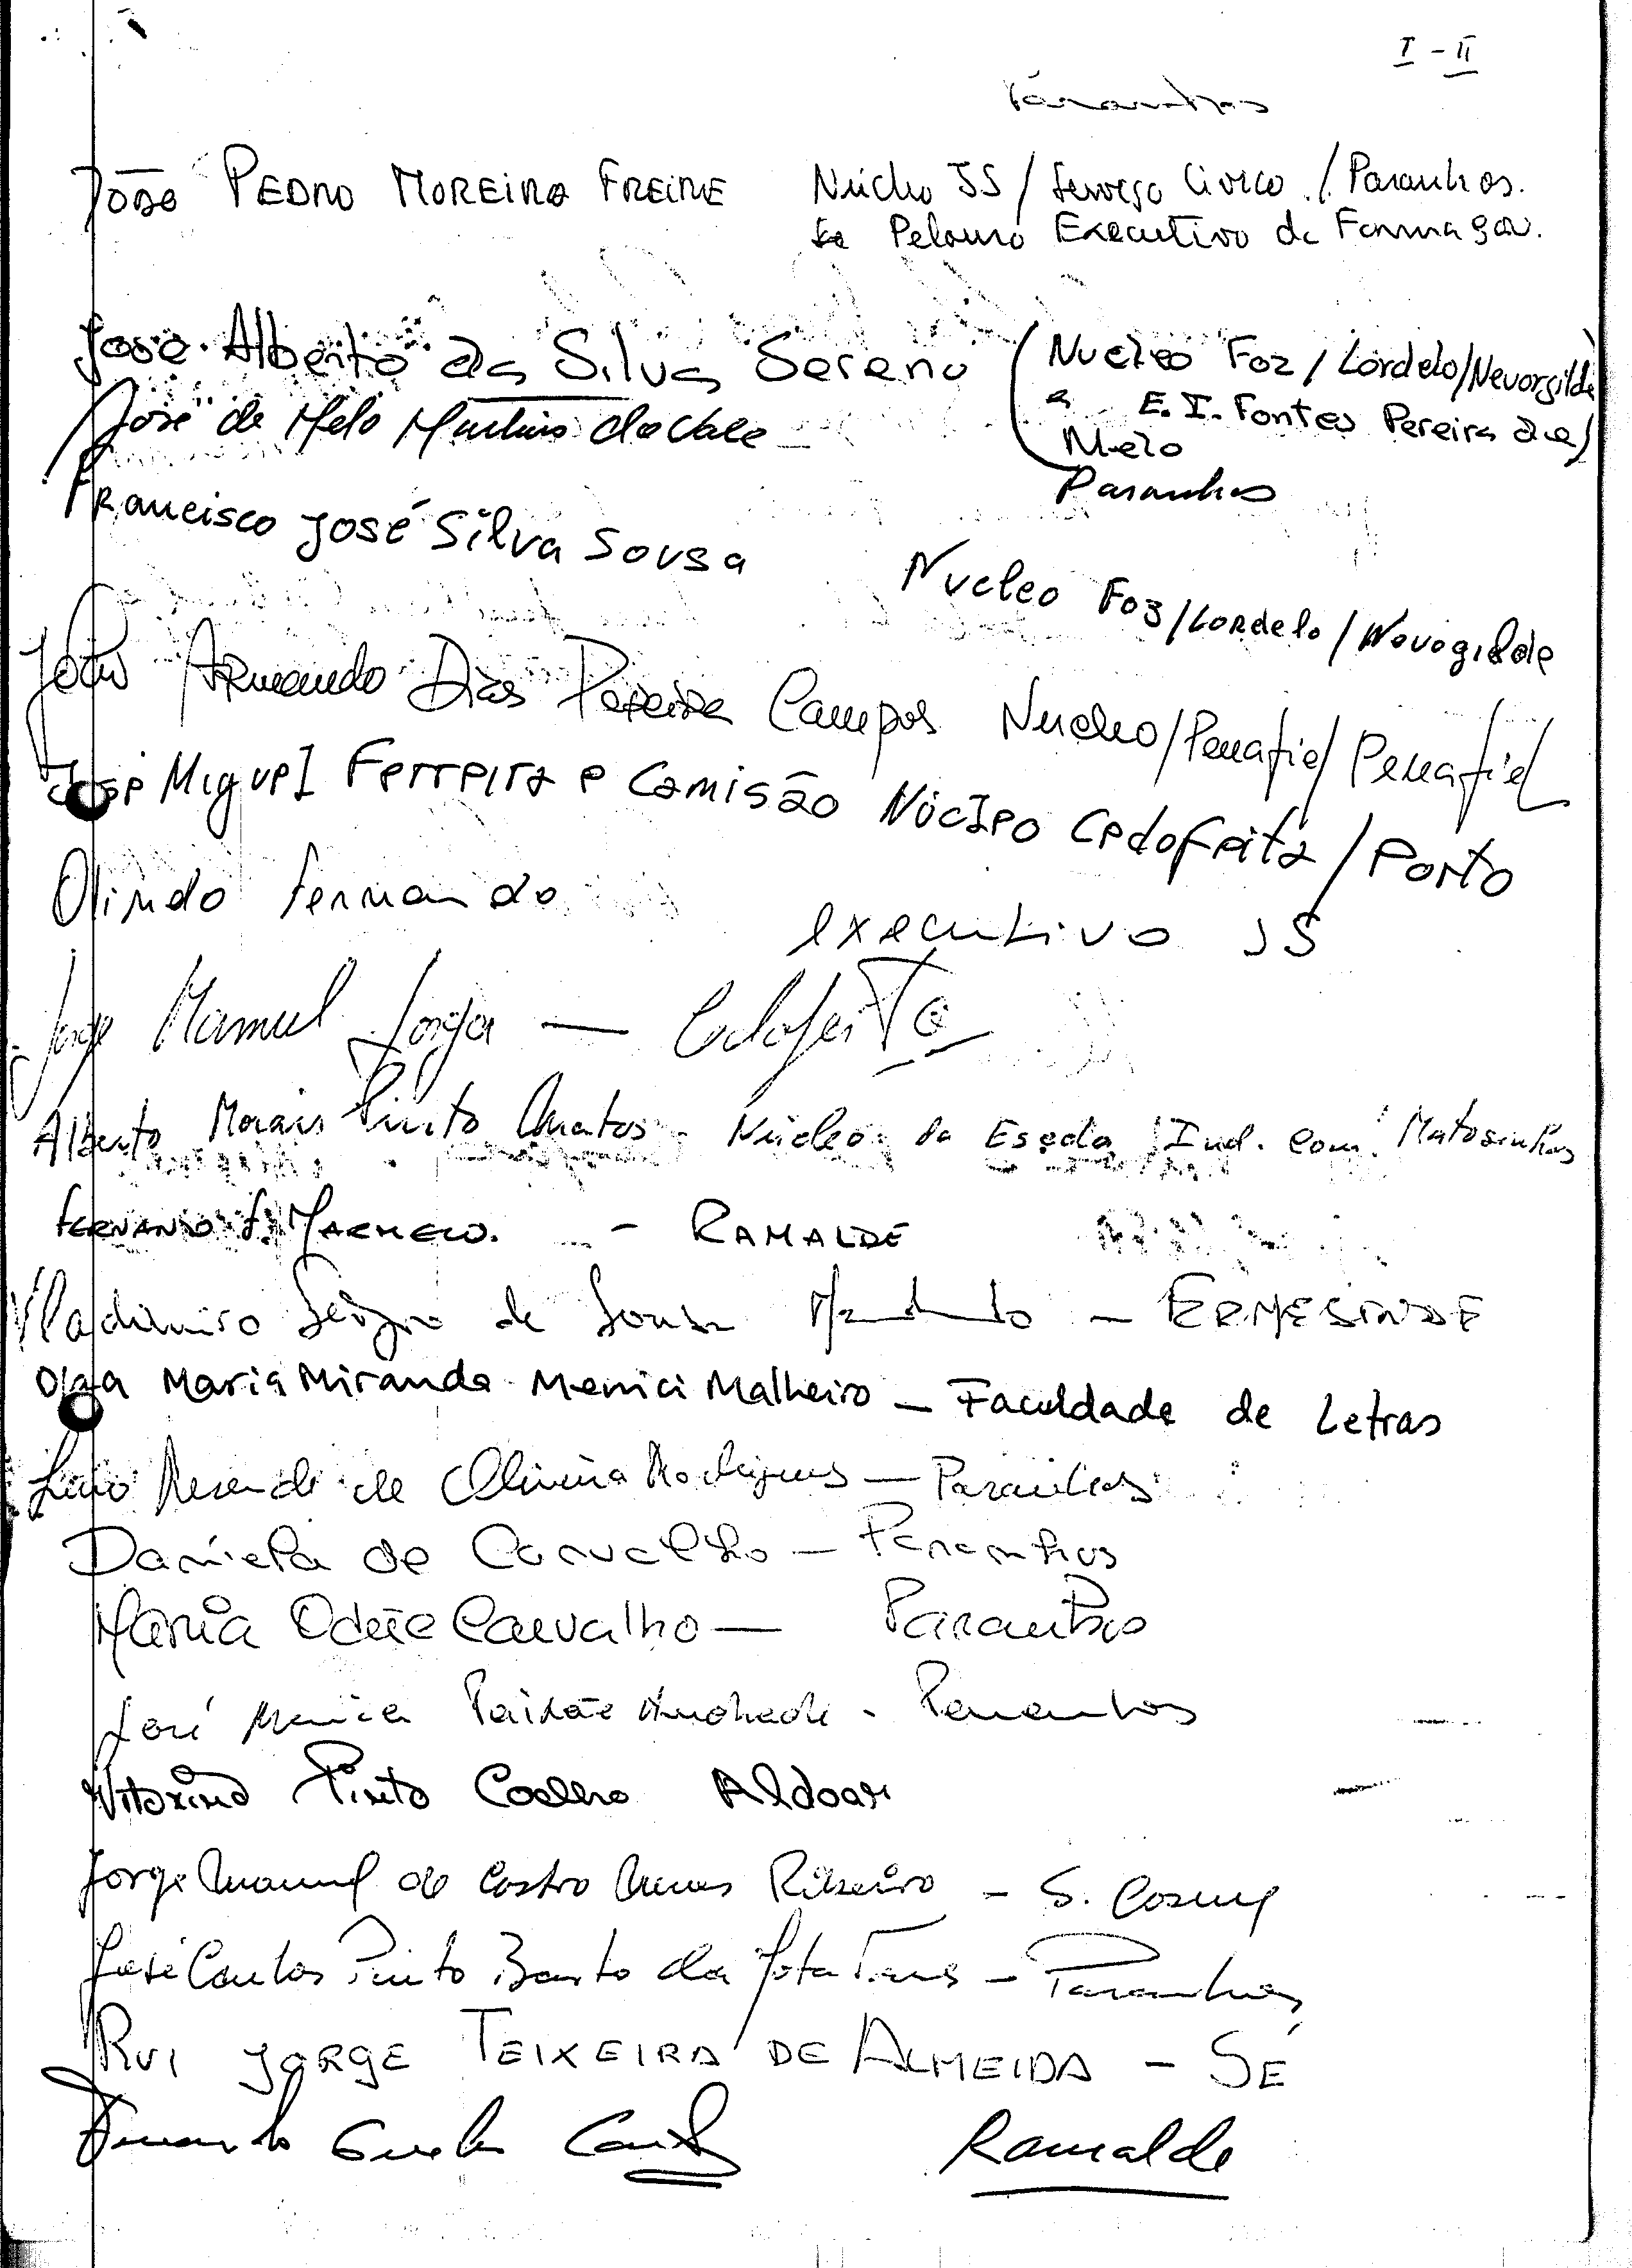 I - II
Paranhos
João PEDRO MOREIRA FREIRE Núcleo JS / Serviço Cívico / Paranhos.
Pelouro Executivo de Formação.
José Alberto da Silva Sereno (Nucleo Foz / Lordelo/Nevorgilde
e E. I. Fontes Pereira de)
José de Melo Martins do Vale
Melo
Paranhos
Francisco José Silva Sousa
Nucleo Foz/Lordelo/Nevogilde
João Armando Dias Pereira Campos Nucleo/Penafiel/Penafiel
José Miguel Ferreira e Camisão Núcleo Cedofeita / Porto
Olindo Fernando
executivo JS
Jorge Manuel Jorge — Cedofeita
Alberto Morais Pinto - Núcleo da Escola Ind. Com. Matosinhos
FERNANDO F. - RAMALDE
Vladimiro Sérgio de Sousa - ERMESINDE
Olga Maria Miranda Menici Malheiro - Faculdade de Letras
Resende de Oliveira Rodrigues — Paranhos
Daniela de Carvalho — Paranhos
Maria Odete Carvalho — Paranhos
José Paixão Andrade - Paranhos
Vitorino Pinto Coelho Aldoar
Jorge Manuel de Castro Ribeiro - S. Cosme
José Carlos Pinto da - Paranhos
RUI JORGE TEIXEIRA DE ALMEIDA - SÉ
Fernando
Ramalde